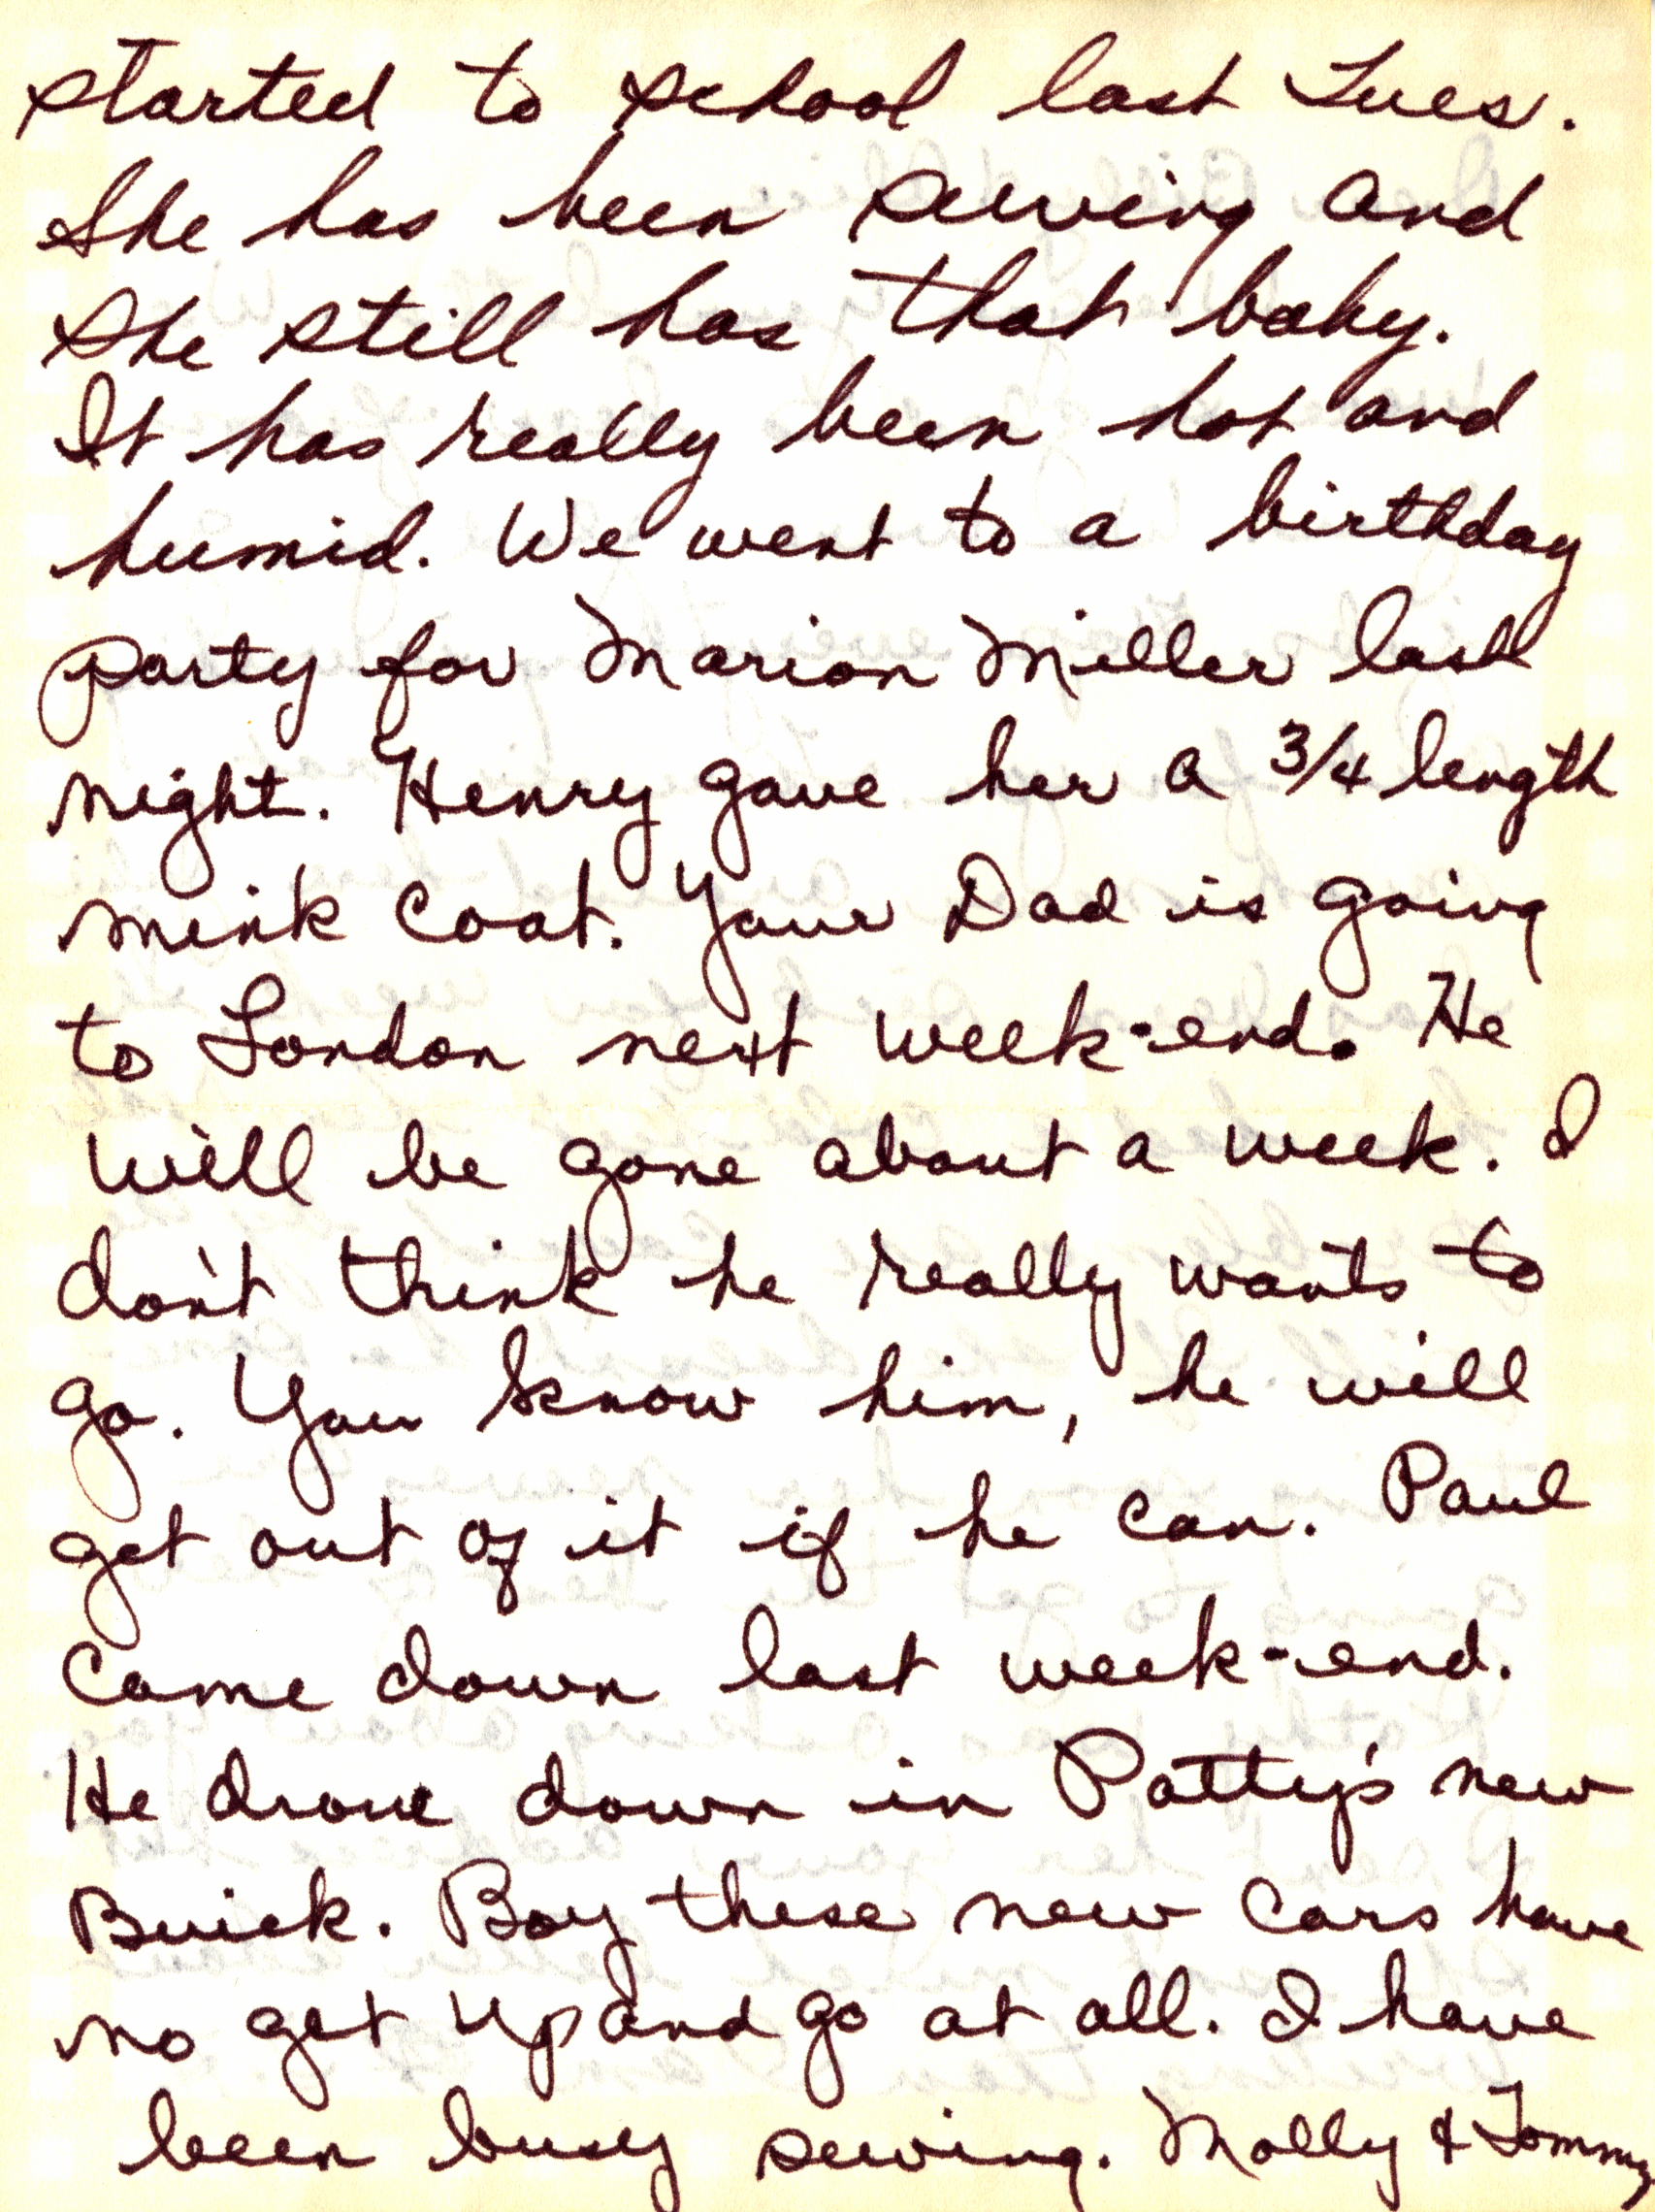 started to school last Tues.
She has been sewing and
she still has that baby.
It has really been hot and
humid. We went to a birthday
party for Marion Miller last
night. Henry gave her a 3/4 length
mink coat. Your Dad is going
to London next week-end. He
will be gone about a week. I
don't think he really wants to
go. You know him, he will
get out of it if he can. Paul
came down last week-end.
He drove down in Patty's new
Buick. Boy these new cars have
no get up and go at all. I have
been busy sewing. Molly & Tommy